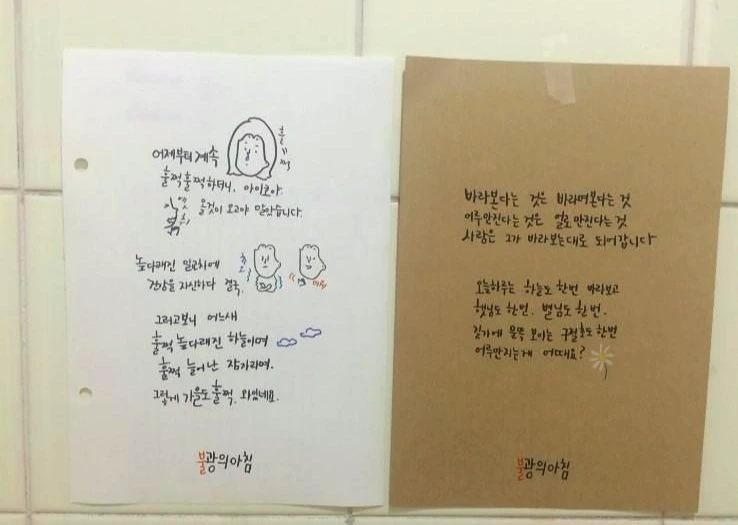 훌쩍
어제부터 계속
훌쩍훌쩍하더니, 아이코야.
엣취
올것이 오고야 말았습니다.
높다래진 일교차에
건강을 자신하다 결국.
그러고보니 어느새
훌쩍 높다래진 하늘이며
훌쩍 늘어난 잠자리며.
그렇게 가을도 훌쩍, 와있네요.
불광의아침
바라본다는 것은 바라며본다는 것
어루만진다는 것은 얼로만진다는 것
사람은 그가 바라보는대로 되어갑니다
오늘하루는 하늘도 한번 바라보고
햇님도 한번, 별님도 한번.
길가에 문뜩 보이는 구절초도 한번
어루만지는게 어때요?
불광의아침